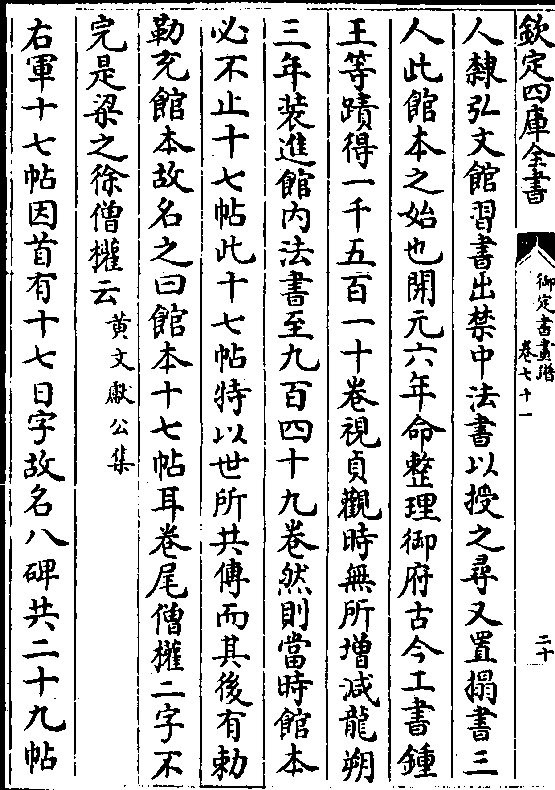 欽定四庫全書
御定書畫譜
卷七十一
二十
人隸弘文館習書出禁中法書以授之尋又置搨書三
人此館本之始也開元六年命整理御府古今工書鍾
王等蹟得一千五百一十卷視貞觀時無所增減龍朔
三年裝進館內法書至九百四十九卷然則當時館本
必不止十七帖此十七帖特以世所共傳而其後有勅
勒充館本故名之曰館本十七帖耳卷尾僧權二字不
完是梁之徐僧權云 黄文獻公集
右軍十七帖因首有十七日字故名八碑共二十九帖